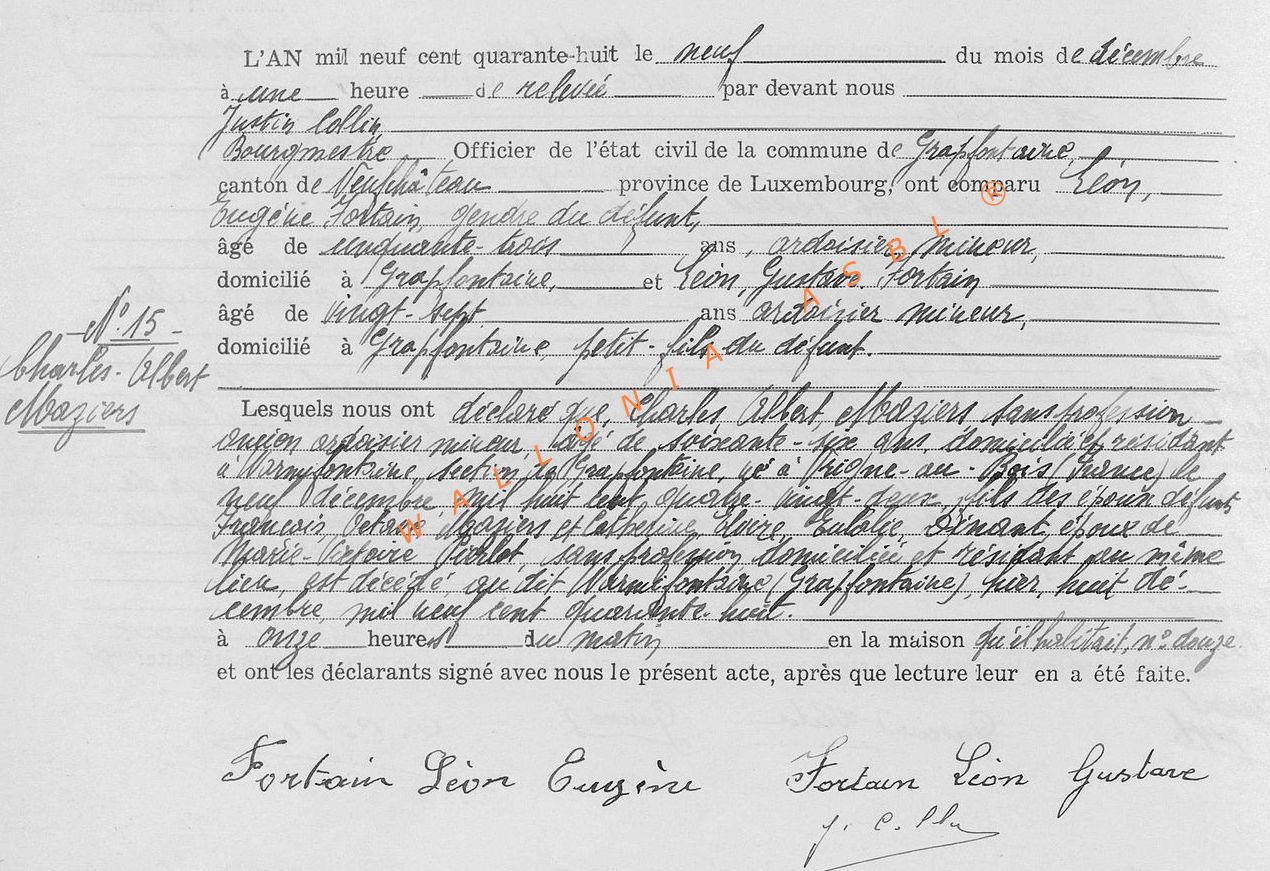 L'AN mil neuf cent quarante-huit le neuf du mois de décembre
à une heure de relevée par devant nous
Justin Collin,
Bourgmestre Officier de l'état civil de la commune de Grapfontaine,
canton de Neufchâteau province de Luxembourg, ont comparu Léon,
Eugène Fortain, gendre du défunt,
âgé de cinquante-trois ans, ardoisier mineur,
domicilié à Grapfontaine, et Léon, Gustave Fortain
âgé de vingt-sept ans ardoisier mineur,
domicilié à Grapfontaine, petit-fils du défunt.
N° 15
Charles-Albert
Maziers
Lesquels nous ont déclaré que, Charles, Albert, Maziers sans profession
ancien ardoisier mineur, âgé de soixante-six ans, domicilié et résidant
à Warmifontaine, section de Grapfontaine, né à Vrigne-au-Bois (France) le
neuf décembre, mil huit cent quatre-vingt-deux, fils des époux défunts
François, Octave Maziers et Catherine, Elvire, Eulalie, Dinant, époux de
Marie-Victoire Pierlot, sans profession, domiciliée et résidant au même
lieu, est décédé, au dit Warmifontaine (Grapfontaine), hier, huit dé-
cembre, mil neuf cent quarante-huit.
à onze heures du matin en la maison qu'il habitait, n° douze.
et ont les déclarants signé avec nous le présent acte, après que lecture leur en a été faite.
Fortain Léon Eugène Fortain Léon Gustave
J. Collin
WALLONIA ASBL ®